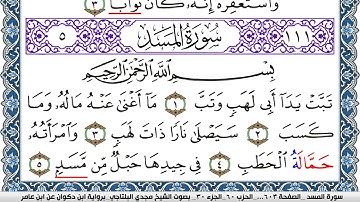 وَٱسْتَغْفِرْهُ إِنَّهُۥ كَانَ تَوَّابَۢا ٣
١١١ سُورَةُ المَسَد ٥
بِسْمِ ٱللَّهِ ٱلرَّحْمَٰنِ ٱلرَّحِيمِ
تَبَّتْ يَدَآ أَبِي لَهَبٖ وَتَبَّ ١ مَآ أَغْنَىٰ عَنْهُ مَالُهُۥ وَمَا
كَسَبَ ٢ سَيَصْلَىٰ نَارٗا ذَاتَ لَهَبٖ ٣ وَٱمْرَأَتُهُۥ
حَمَّالَةُ ٱلْحَطَبِ ٤ فِي جِيدِهَا حَبْلٞ مِّن مَّسَدِۭ ٥
سورة المسد _الصفحة ٦٠٣... _الحزب ٦٠_الجزء ٣٠_ بصوت الشيخ مجدي البلتاجي_ برواية ابن ذكوان عن ابن عامر